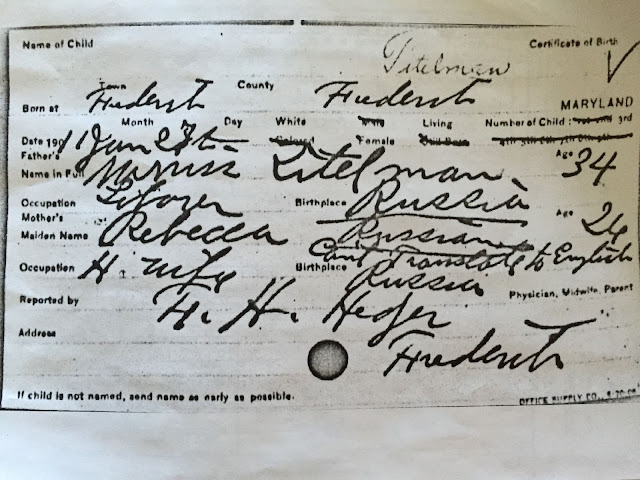 Name of Child Titelman Certificate of Birth
Town County
Born at Frederick Frederick MARYLAND
Month Day White Male Living Number of Child: 1st 2nd 3rd
Date 190 1 Jan 27th Colored Female 4th 5th 6th 7th 8th 9th
Father's Age
Name in Full Titelman 34
Occupation Birthplace Russia
Mother's Age
Maiden Name Rebecca Russian 26
Can't Translate to English
Occupation H. wife Birthplace Russia
Physician, Midwife, Parent
Reported by F. H.
Address Frederick
If child is not named, send name as early as possible.
OFFICE SUPPLY CO.